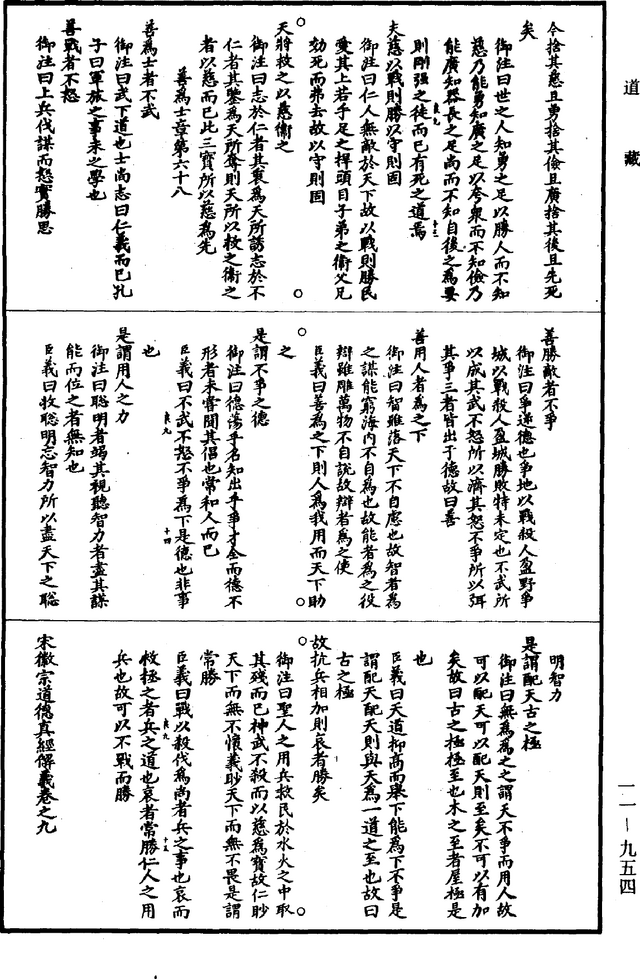 道藏
今捨其慈且勇捨其儉且廣捨其後且先死
矣
御注曰世之人知勇之足以勝人而不知
慈乃能勇知廣之足以夸衆而不知儉乃
能廣知器長之足尚而不知自後之爲要
則剛强之徒而已有死之道焉
夫慈以戰則勝以守則固
御注曰仁人無敵於天下故以戰則勝民
愛其上若手足之捍頭目子弟之衛父兄
効死而弗去故以守則固
天將救之以慈衛之
御注曰志於仁者其衷爲天所誘志於不
仁者其鑒爲天所奪則天所以救之衛之
者以慈而已此三寶所以慈爲先
善爲士章第六十八
善爲士者不武
御注曰武下道也士尚志曰仁義而已孔
子曰軍旅之事未之學也
善戰者不怒
御注曰上兵伐謀而怒實勝思
善勝敵者不爭
御注曰爭逆德也爭地以戰殺人盈野爭
城以戰殺人盈城勝敗特未定也不武所
以成其武不怒所以濟其怒不爭所以弭
其爭三者皆出于德故曰善
善用人者爲之下
御注曰智雖落天下不自慮也故智者爲
之謀能窮海内不自爲也故能者爲之役
辯雖雕萬物不自說故辯者爲之使
臣義曰善爲之下則人爲我用而天下助
之
是謂不爭之德
御注曰德蕩乎名知出乎爭才全而德不
形者未嘗聞其倡也常和人而已
臣義曰不武不怒不爭爲下是德也非事
也
是謂用人之力
御注曰聦明者竭其視聽智力者盡其謀
能而位之者無知也
臣義曰收聦明忘智力所以盡天下之聦
明智力
是謂配天古之極
御注曰無爲爲之之謂天不爭而用人故
可以配天可以配天則至矣不可以有加
矣故曰古之極極至也木之至者屋極是
也
臣義曰天道抑髙而舉下能爲下不爭是
謂配天配天則與天爲一道之至也故曰
古之極
故抗兵相加則哀者勝矣
御注曰聖人之用兵救民於水火之中取
其殘而已神武不殺而以慈爲寶故仁眇
天下而無不懷義眇天下而無不畏是謂
常勝
臣義曰戰以殺伐爲尚者兵之事也哀而
救拯之者兵之道也哀者常勝仁人之用
兵也故可以不戰而勝
宋徽宗道德真經解義卷之九
一一－九五四